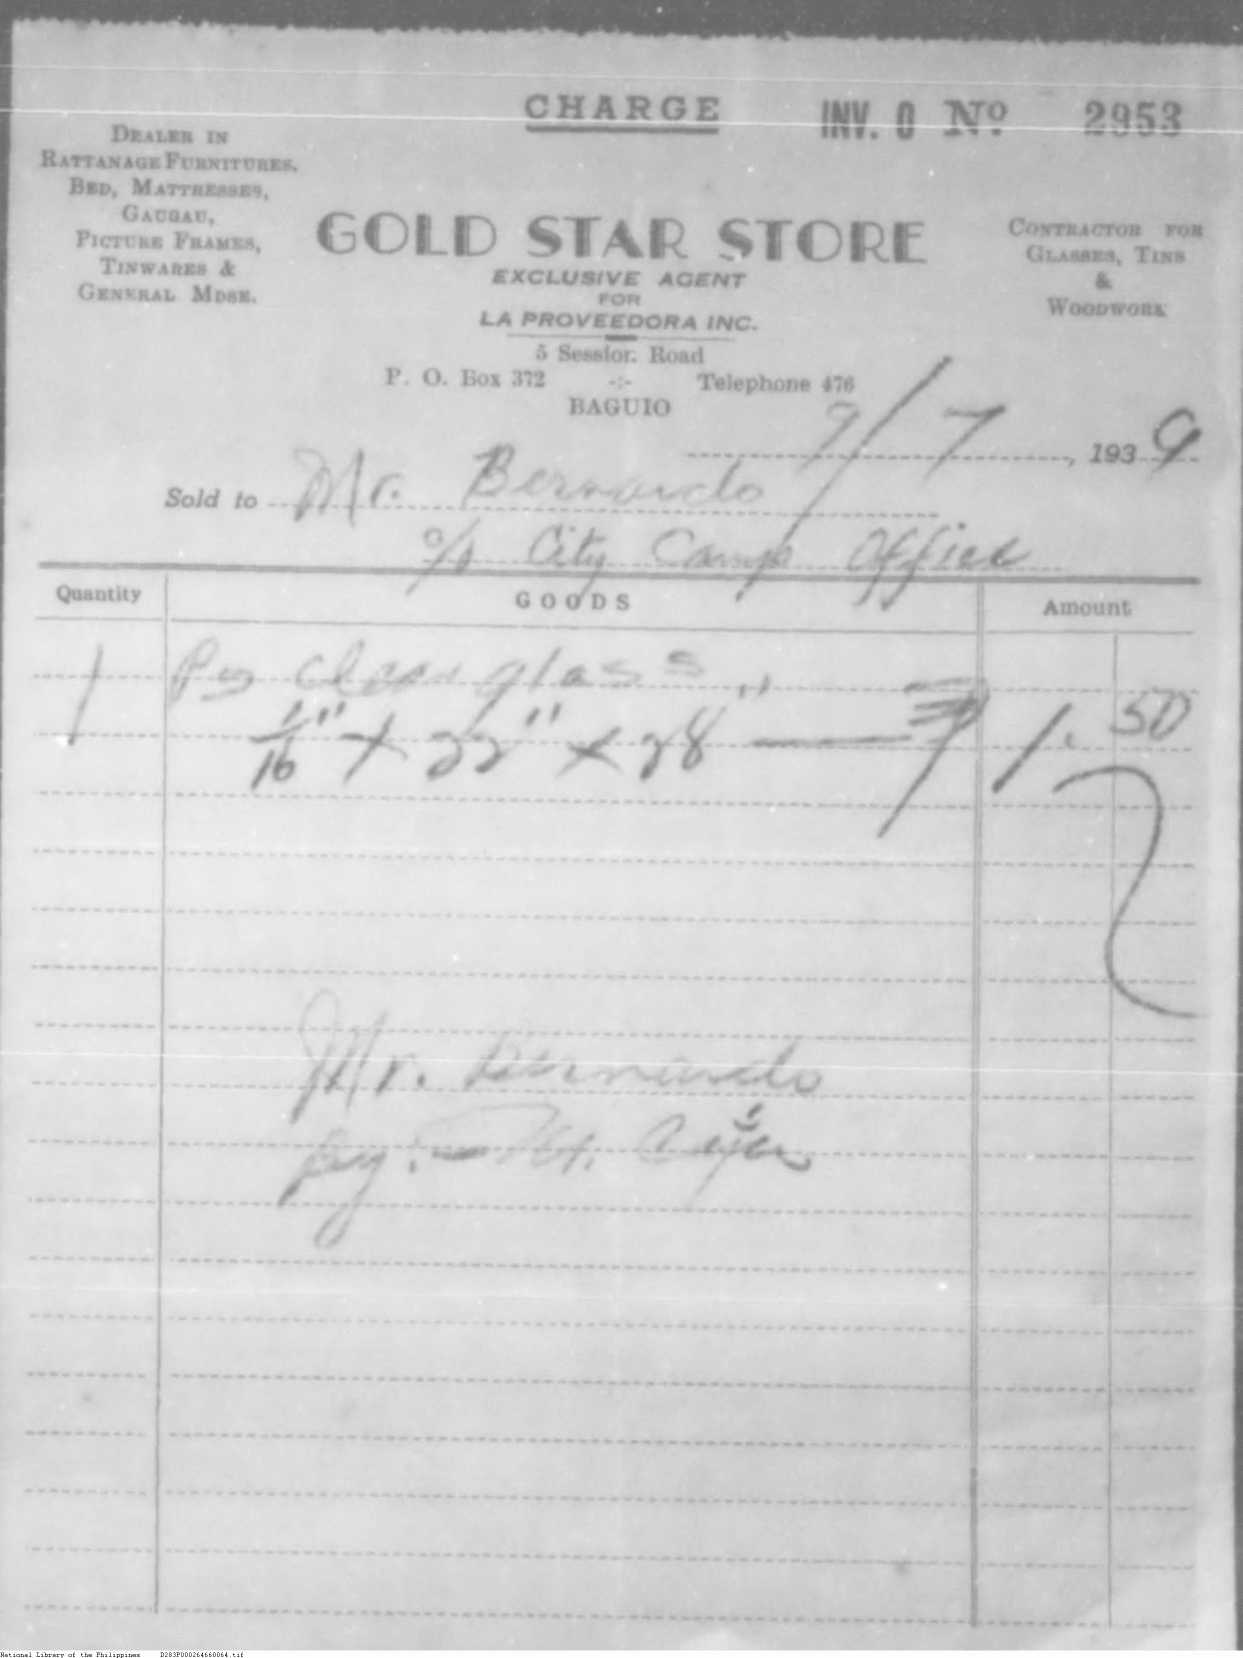 CHARGE
INV. O No. 2953
DEALER IN
RATTANAGE FURNITURES,
BED, MATTRESSES,
GAUGAU,
PICTURE FRAMES,
TINWARES &
GENERAL MDSE.
GOLD STAR STORE
EXCLUSIVE AGENT
FOR
LA PROVEEDORA INC.
5 Session Road
P. O. Box 372 -:- Telephone 476
BAGUIO
CONTRACTOR FOR
GLASSES, TINS
&
WOODWORK
9/7, 1939
Sold to Mr. Bernardo
c/o City Camp Office
Quantity GOODS Amount
1 Pc clear glass
1/16" x 22" x 28" — 1.50
Mr. Bernardo
by:-
National Library of the Philippines D283P000264660064.tif